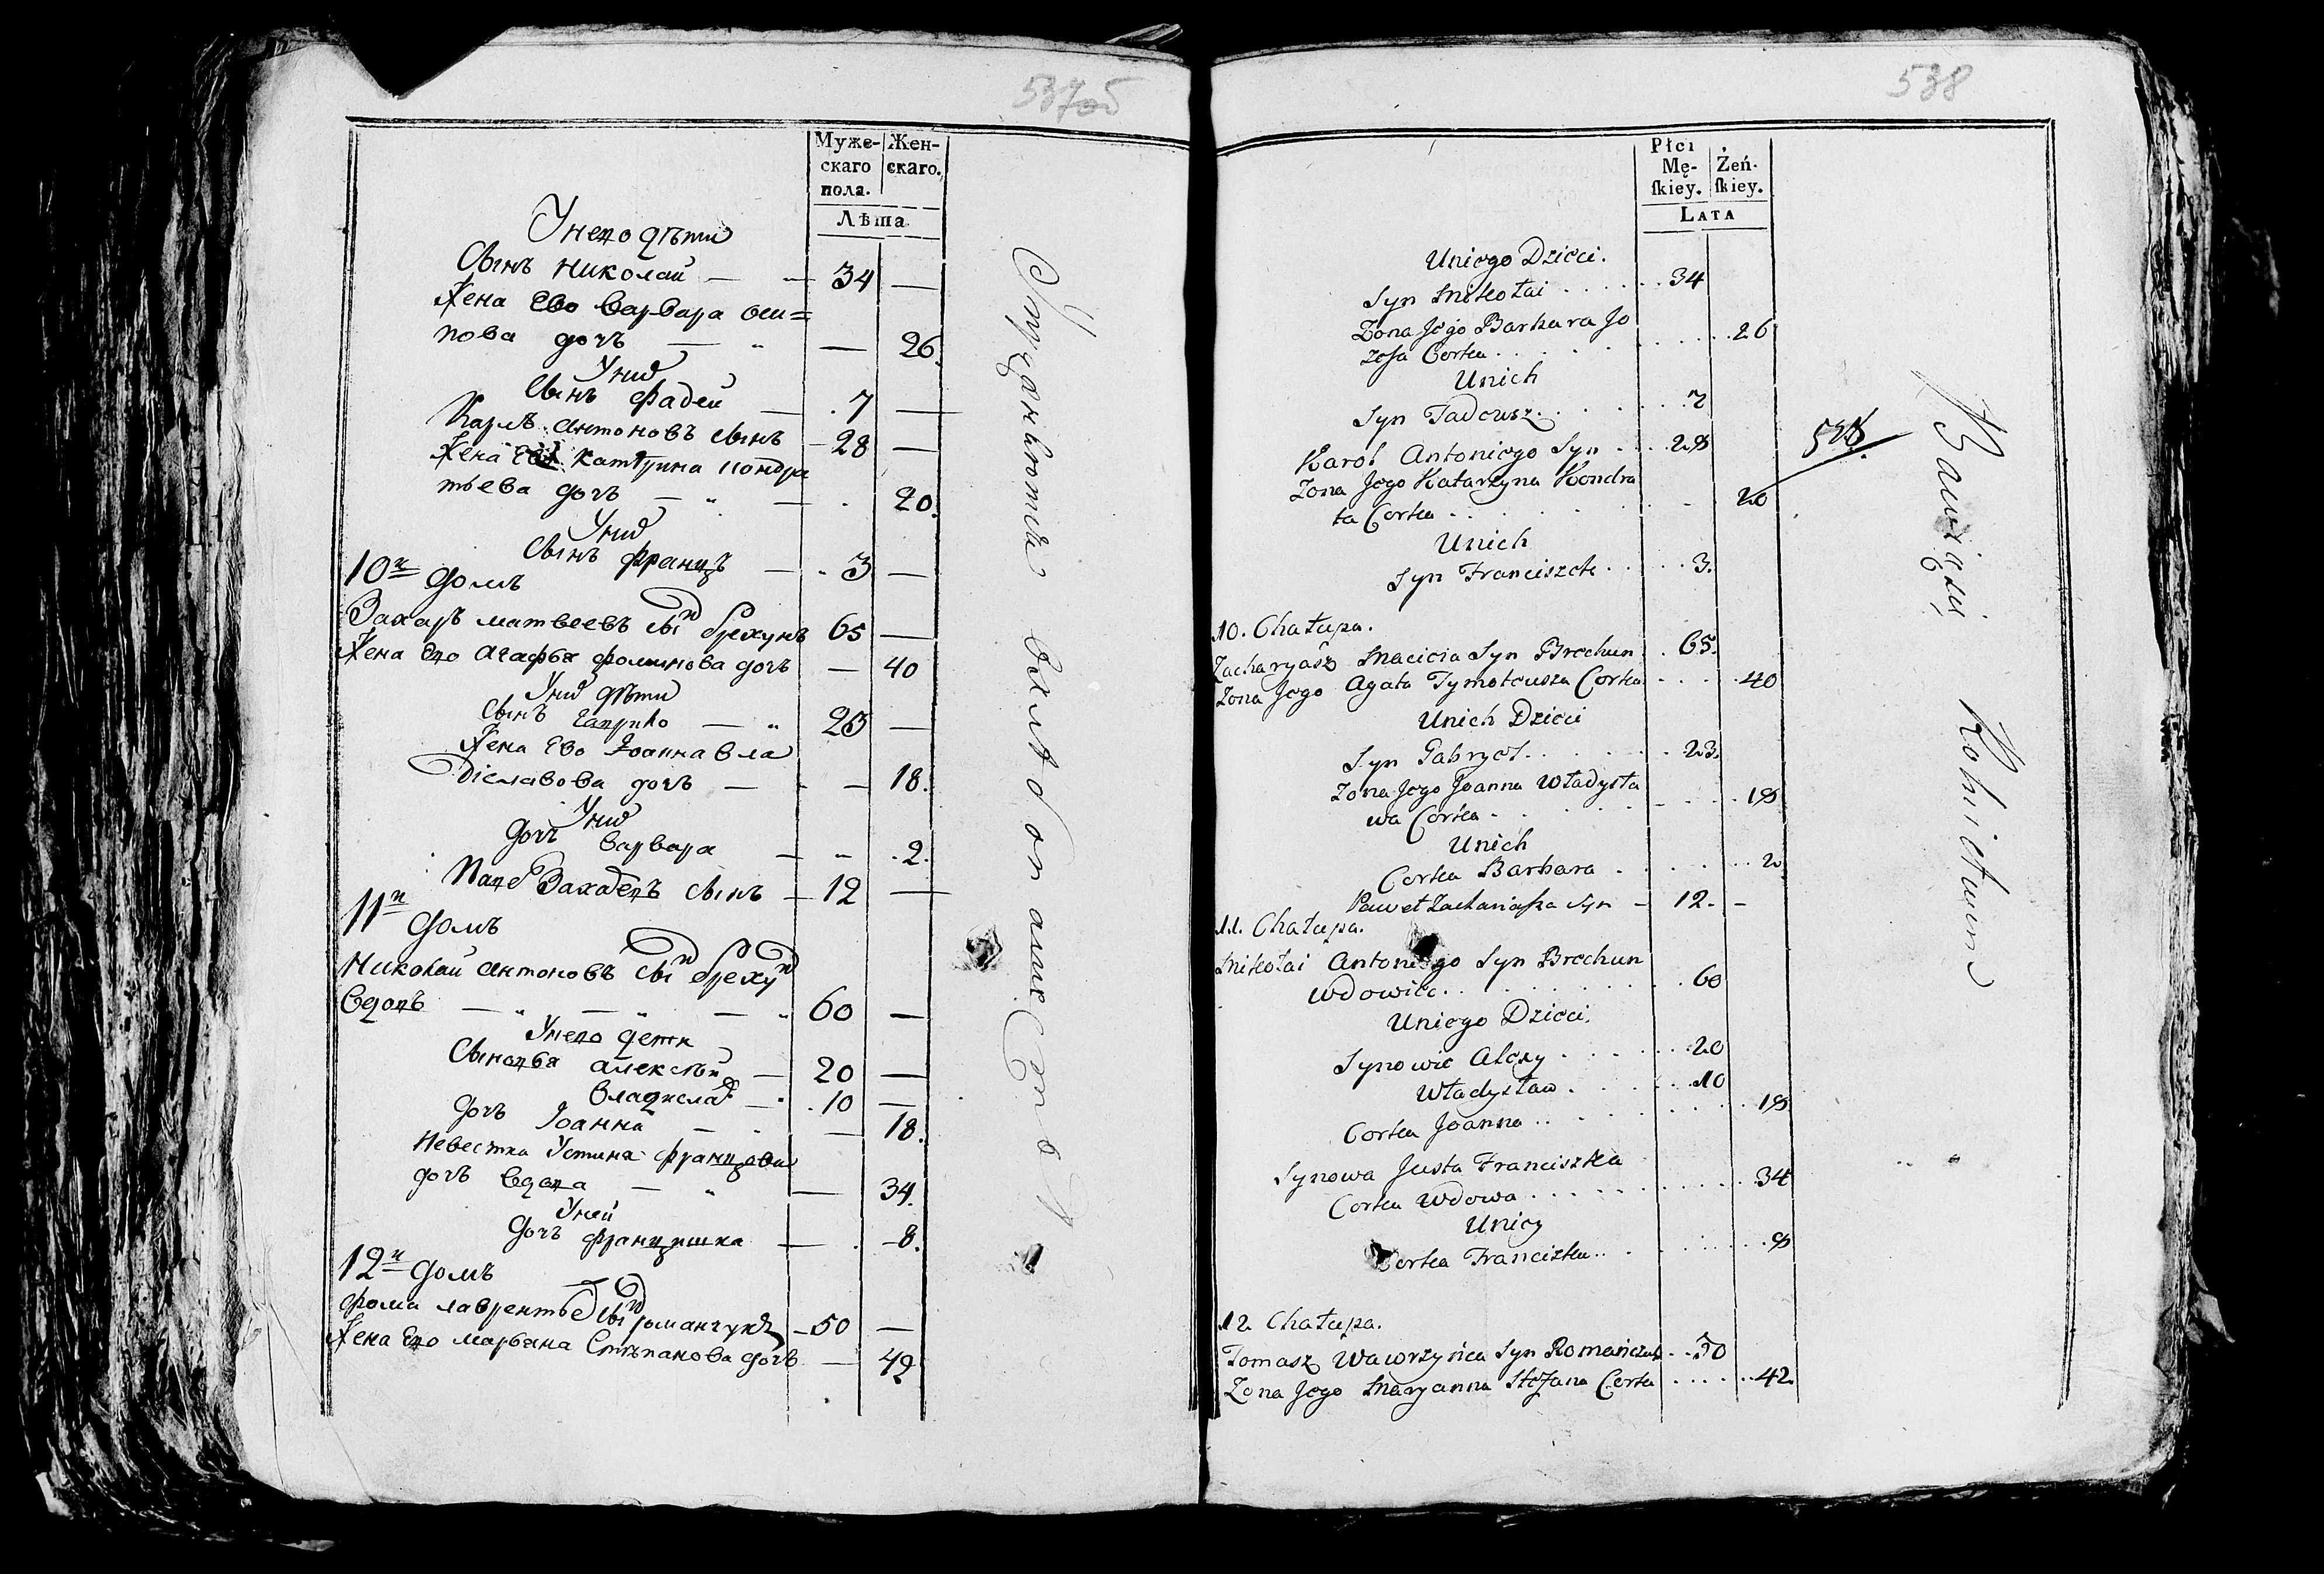 537об
Муже-
скаго
пола.
Жен-
скаго.
Лѣта
Унего дѣти
Сынъ Николай — 34 —
Жена Ево Варвара Оси=
пова дочъ — — 26.
Уних
Сынъ Фадей — 7 —
Карлъ Антоновъ сынъ — 28 —
Жена Катѣрина Кондра
тьева дочъ — 20.
Уних
Сынъ Францъ — 3 —
10й Домъ
Захаръ Матвеевъ сын Брехунъ 65 —
Жена Его Агафья дочъ — 40
Уних дѣти
Сынъ — 23 —
Жена Ево Иоанна Вла
диславова дочъ — — 18.
Уних
Дочъ Варвара — 2.
сынъ — 12 —
11й Домъ
Николай Антоновъ сын Брехун
Вдовъ — — — 60 —
Унего дети
Сыновья Алексѣй — 20 —
Владислав — 10 —
Дочъ Иоанна — — 18.
Невестка Устина Францова
дочъ Вдова — — 34.
Уней
Дочъ Францишка — 8.
12й Домъ
Фома Лавренть сын Романчукъ — 50 —
Жена Его Марьяна Стѣпанова дочъ — 42
538
Płci
Mę-
ſkiey.
Żeń-
ſkiey.
LATA
Uniego Dzieci.
Syn Mikołai 34
Zona Jego Barbara Jo
zefa Corka 26
Unich
Syn Tadeusz 7
Karol Antoniego Syn 28
Zona Jego Katarzyna Kondra
ta Corka 20
Unich
Syn Franciszek 3.
10. Chałupa.
Zacharyasz Macieia Syn Brechun 65.
Zona Jego Agata Tymoteusza Corka 40
Unich Dzieci
Syn Gabryel 23.
Zona Jego Joanna Władysła
wa Corka 18
Unich
Corka Barbara 2
Paweł Zachariasza Syn — 12. —
11. Chałupa.
Mikołai Antoniego Syn Brechun
Wdowiec 60
Uniego Dzieci.
Synowie Alexy 20
Władysław 10
Corka Joanna 18
Synowa Justa Franciszka
Corka Wdowa 34
Unicy
Corka Franciszka 8
12 Chałupa.
Tomasz Wawrzyńca Syn Romańczuk 50
Zona Jego Maryanna Stefana Corka 42